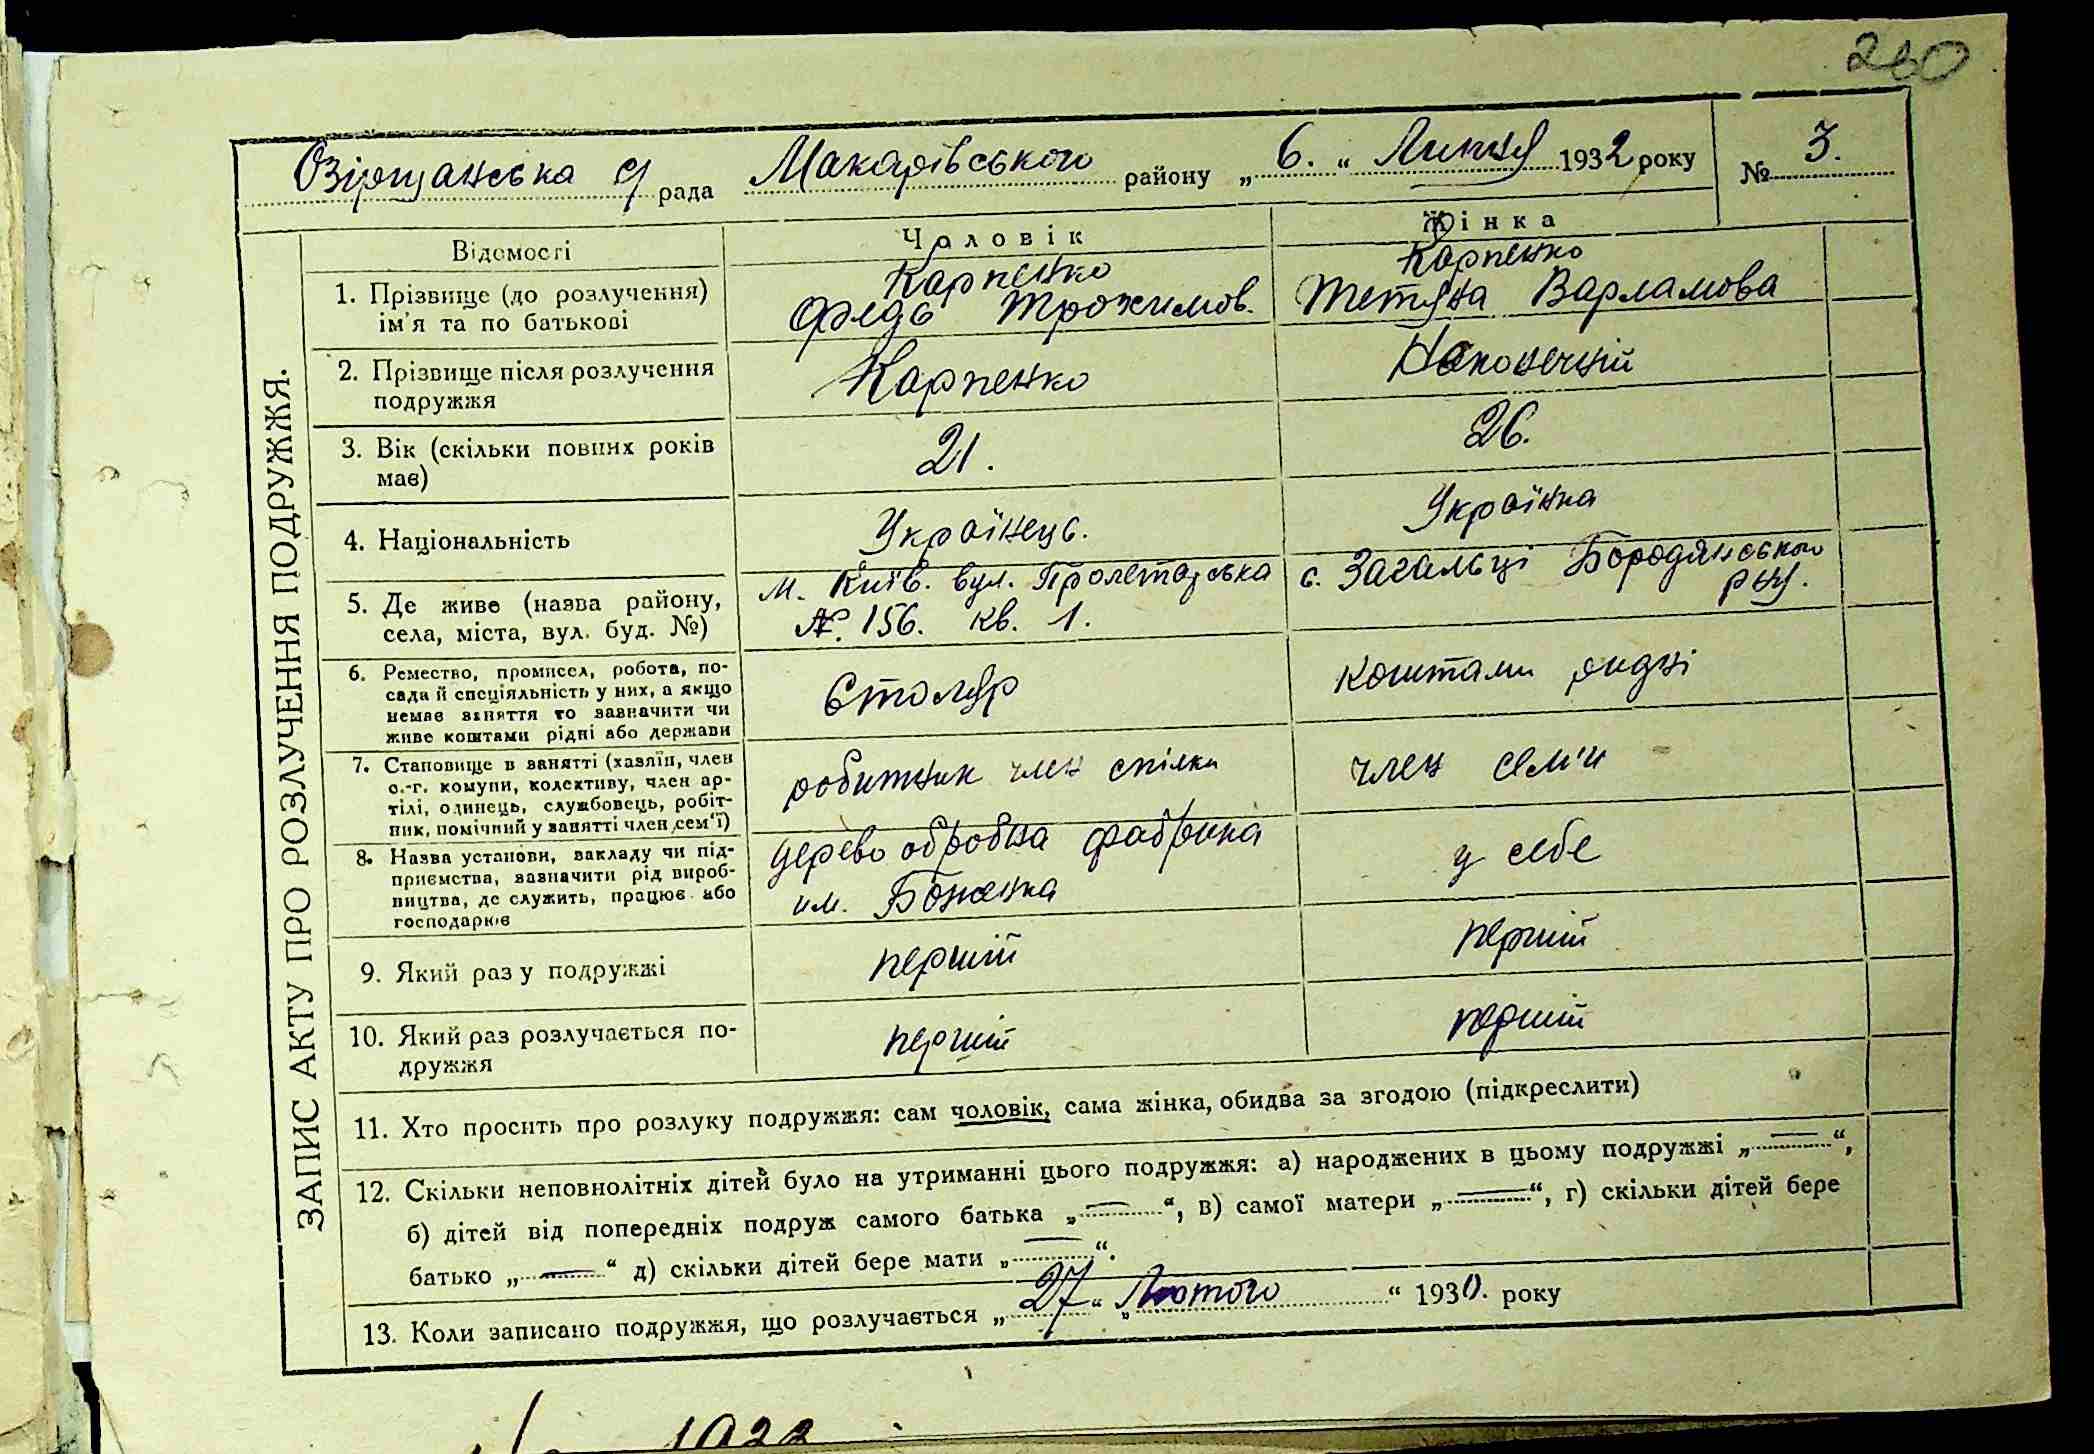 260
Озірщанська с/рада Макарівського району „6.“ Липня 1932 року № 3.
ЗАПИС АКТУ ПРО РОЗЛУЧЕННЯ ПОДРУЖЖЯ.
Відомості Чоловік Жінка
1. Прізвище (до розлучення) ім'я та по батькові
Карпенко
Федь Трохимов.
Карпенко
Тетяна Варламова
2. Прізвище після розлучення
подружжя
Карпенко
3. Вік (скільки повних років
має)
21.
26.
4. Національність
Українець.
Українка
5. Де живе (назва району,
села, міста, вул. буд. №)
м. Київ. вул. Пролетарська
№. 156. кв. 1.
с. Загальці Бородянського
р-ну.
6. Ремество, промисел, робота, по-
сада й спеціяльність у них, а якщо
немає заняття то зазначити чи
живе коштами рідні або держави
Столяр
коштами ридні
7. Становище в занятті (хазяїн, член
с.-г. комуни, колективу, член ар-
тілі, одинець, службовець, робіт-
ник, помічний у занятті член сем'ї)
робитник член спілки
член сем'и
8. Назва установи, закладу чи під-
приємства, зазначити рід вироб-
ництва, де служить, працює або
господарює
дерево обробна фабрика
им. Боженка
у себе
9. Який раз у подружжі
перший
перший
10. Який раз розлучається по-
дружжя
перший
перший
11. Хто просить про розлуку подружжя: сам чоловік, сама жінка, обидва за згодою (підкреслити)
12. Скільки неповнолітніх дітей було на утриманні цього подружжя: а) народжених в цьому подружжі „—“,
б) дітей від попередніх подруж самого батька „—“, в) самої матери „—“, г) скільки дітей бере
батько „—“ д) скільки дітей бере мати „—“.
13. Коли записано подружжя, що розлучається „27“ „Лютого“ 1930. року